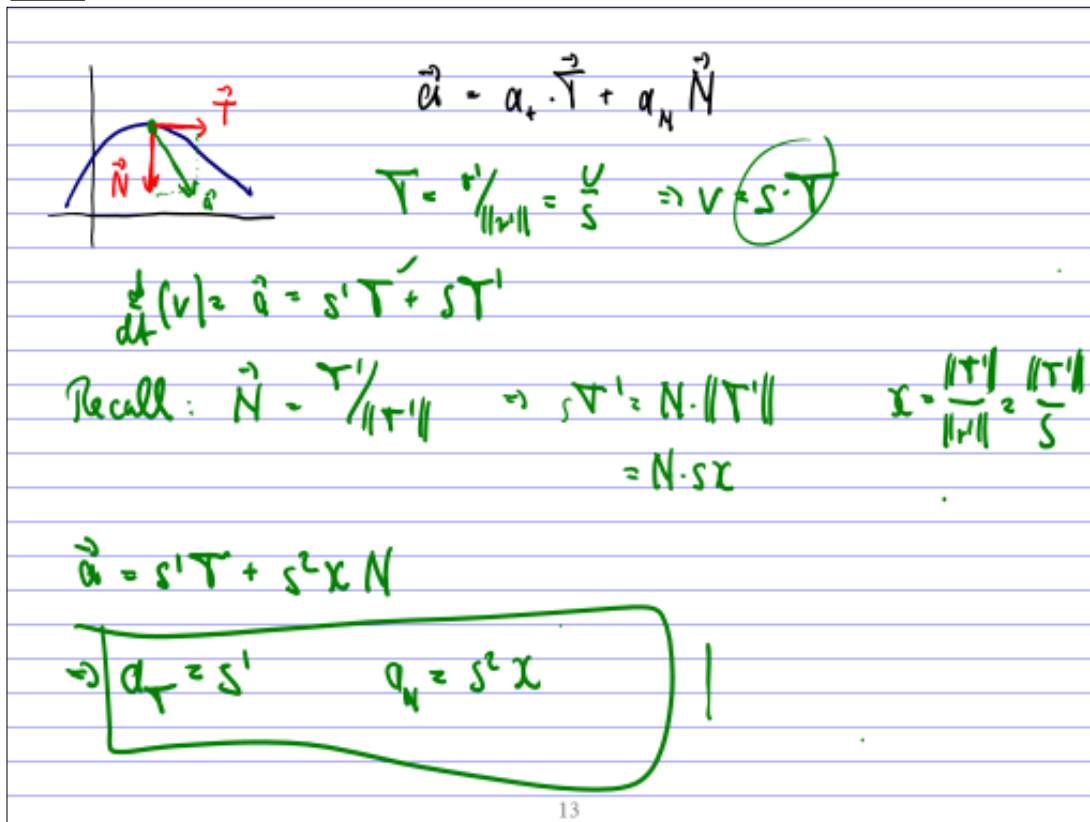 a⃗ = a_t · T⃗ + a_N N⃗
T⃗
N⃗
a⃗
T = r'/||r'|| = v/s ⇒ v = s·T
d/dt (v) = a⃗ = s'T + sT'
Recall: N⃗ = T'/||T'|| ⇒ T' = N·||T'|| χ = ||T'||/||r'|| = ||T'||/s
= N·sχ
a⃗ = s'T + s²χN
⇒ a_T = s' a_N = s²χ
13